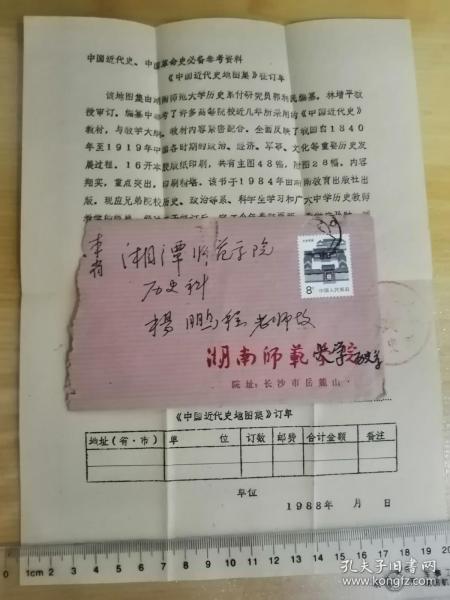 中国近代史、中国革命史必备参考资料
《中国近代史地图集》征订单
该地图集由湖南师范大学历史系付研究员郭利民编纂。林增平教
授审订。编纂中参考了许多高等院校近几年所采用的《中国近代史》
教材,与教学大纲、教材内容紧密配合。全面反映了我国自1840
年至1919年中国各时期的政治、经济、军事、文化等重要历史发
展过程。16开本胶版纸印刷,共有主图48幅,附图28幅。内容
翔实,重点突出,印刷精格。该书于1984年由湖南教育出版社出
版。现应兄弟院校历史、政治等系、科学生学习和广大中学历史教师
本省
湘潭师范学院
历史科
杨鹏程老师收
8分
中国人民邮政
湖南师範大学
历史系
院址:长沙市岳麓山
《中国近代史地图集》订单
地址(省·市) 单位 订数 邮费 合计金额 备注
单位
1988年 月 日
0 1cm 2 3 4 5 6 7 8 9 10 11 12 13 14 15 16 17 18 19 20
孔夫子旧书网